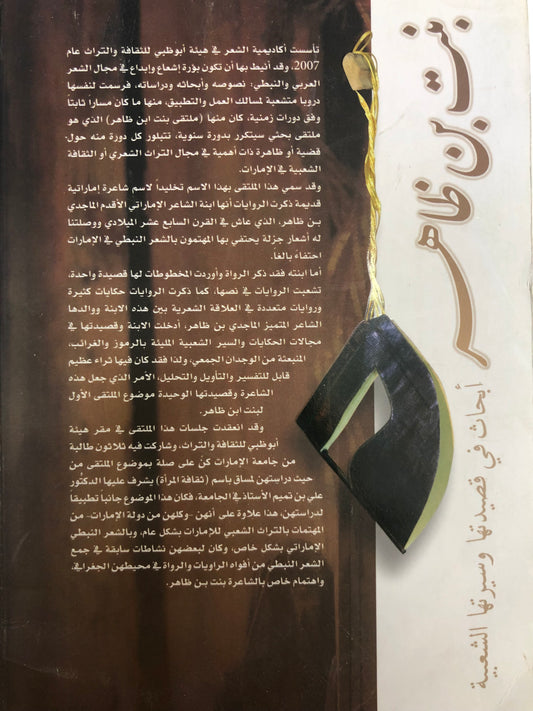 بنت بن ظاهر
أبحاث في قصيدتها وسيرتها الشعبية
تأسست أكاديمية الشعر في هيئة أبوظبي للثقافة والتراث عام
2007، وقد أنيط بها أن تكون بؤرة إشعاع وإبداع في مجال الشعر
العربي والنبطي: نصوصه وأبحاثه ودراساته، فرسمت لنفسها
دروبا متشعبة لمسالك العمل والتطبيق، منها ما كان مسارا ثابتاً
وفق دورات زمنية، كان منها (ملتقى بنت ابن ظاهر) الذي هو
ملتقى بحثي سيتكرر بدورة سنوية، تتبلور كل دورة منه حول-
قضية أو ظاهرة ذات أهمية في مجال التراث الشعري أو الثقافة
الشعبية في الإمارات.
وقد سمي هذا الملتقى بهذا الاسم تخليداً لاسم شاعرة إماراتية
قديمة ذكرت الروايات أنها ابنة الشاعر الإماراتي الأقدم الماجدي
بن ظاهر، الذي عاش في القرن السابع عشر الميلادي ووصلتنا
له أشعار جزلة يحتفي بها المهتمون بالشعر النبطي في الإمارات
احتفاءً بالغا.
أما ابنته فقد ذكر الرواة وأوردت المخطوطات لها قصيدة واحدة،
تشعبت الروايات في نصها، كما ذكرت الروايات حكايات كثيرة
وروايات متعددة في العلاقة الشعرية بين هذه الابنة ووالدها
الشاعر المتميز الماجدي بن ظاهر، أدخلت الابنة وقصيدتها في
مجالات الحكايات والسير الشعبية المليئة بالرموز والغرائب،
المنبعثة من الوجدان الجمعي، ولذا فقد كان فيها ثراء عظيم
قابل للتفسير والتأويل والتحليل، الأمر الذي جعل هذه
الشاعرة وقصيدتها الوحيدة موضوع الملتقى الأول
لبنت ابن ظاهر.
وقد انعقدت جلسات هذا الملتقى في مقر هيئة
أبوظبي للثقافة والتراث، وشاركت فيه ثلاثون طالبة
من جامعة الإمارات كنّ على صلة بموضوع الملتقى من
حيث دراستهن لمساق باسم (ثقافة المرأة) يشرف عليها الدكتور
علي بن تميم الأستاذ في الجامعة، فكان هذا الموضوع جانبا تطبيقا
لدراستهن، هذا علاوة على أنهن -وكلهن من دولة الإمارات- من
المهتمات بالتراث الشعبي للإمارات بشكل عام، وبالشعر النبطي
الإماراتي بشكل خاص، وكان لبعضهن نشاطات سابقة في جمع
الشعر النبطي من أفواه الراويات والرواة في محيطهن الجغرافي،
واهتمام خاص بالشاعرة بنت بن ظاهر.